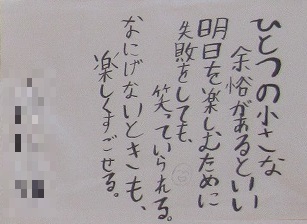 ひとつの小さな
余裕があるといい
明日を楽しむために
失敗をしても、
笑っていられる。
なにげないときも、
楽しくすごせる。